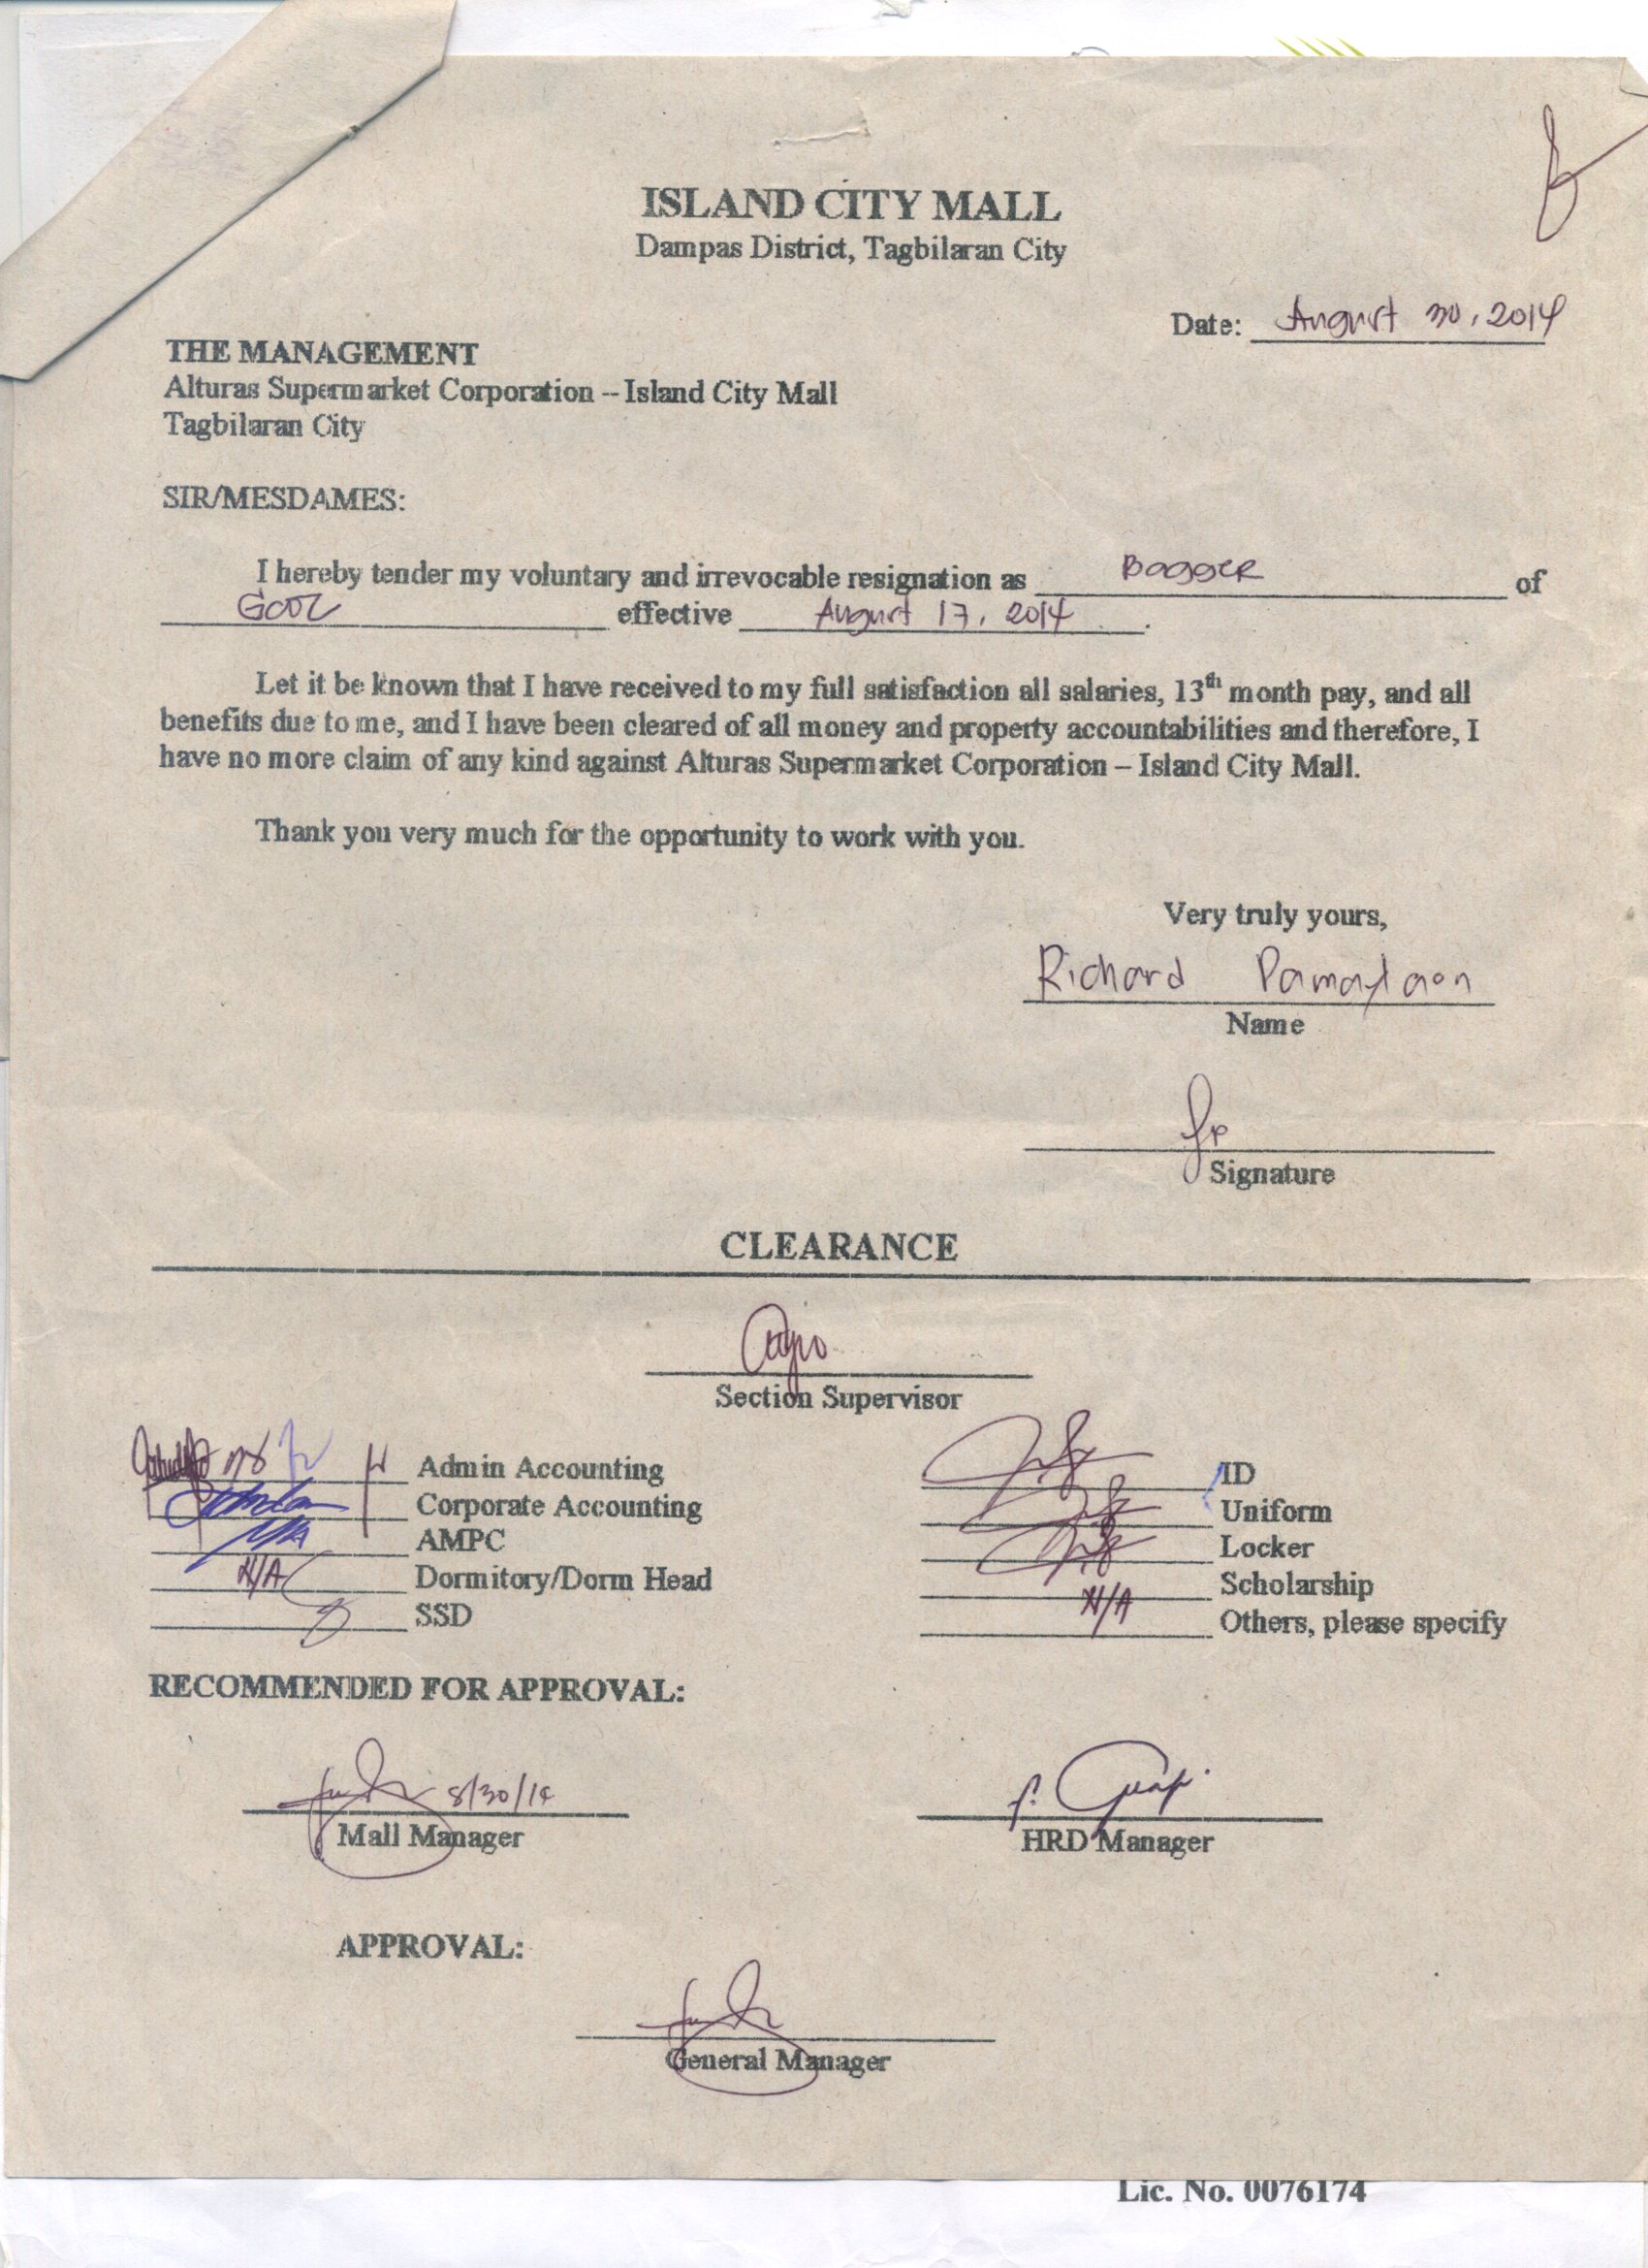 ISLAND CITY MALL
Dampas District, Tagbilaran City
Date: August 30, 2014
THE MANAGEMENT
Alturas Supermarket Corporation – Island City Mall
Tagbilaran City
SIR/MESDAMES:
I hereby tender my voluntary and irrevocable resignation as Bagger of
effective August 17, 2014.
Let it be known that I have received to my full satisfaction all salaries, 13th month pay, and all
benefits due to me, and I have been cleared of all money and property accountabilities and therefore, I
have no more claim of any kind against Alturas Supermarket Corporation – Island City Mall.
Thank you very much for the opportunity to work with you.
Very truly yours,
Richard Pamaylaon
Name
Signature
CLEARANCE
Section Supervisor
Admin Accounting
Corporate Accounting
N/A AMPC
N/A Dormitory/Dorm Head
SSD
ID
Uniform
Locker
Scholarship
N/A Others, please specify
RECOMMENDED FOR APPROVAL:
8/30/14
Mall Manager
HRD Manager
APPROVAL:
General Manager
Lic. No. 0076174